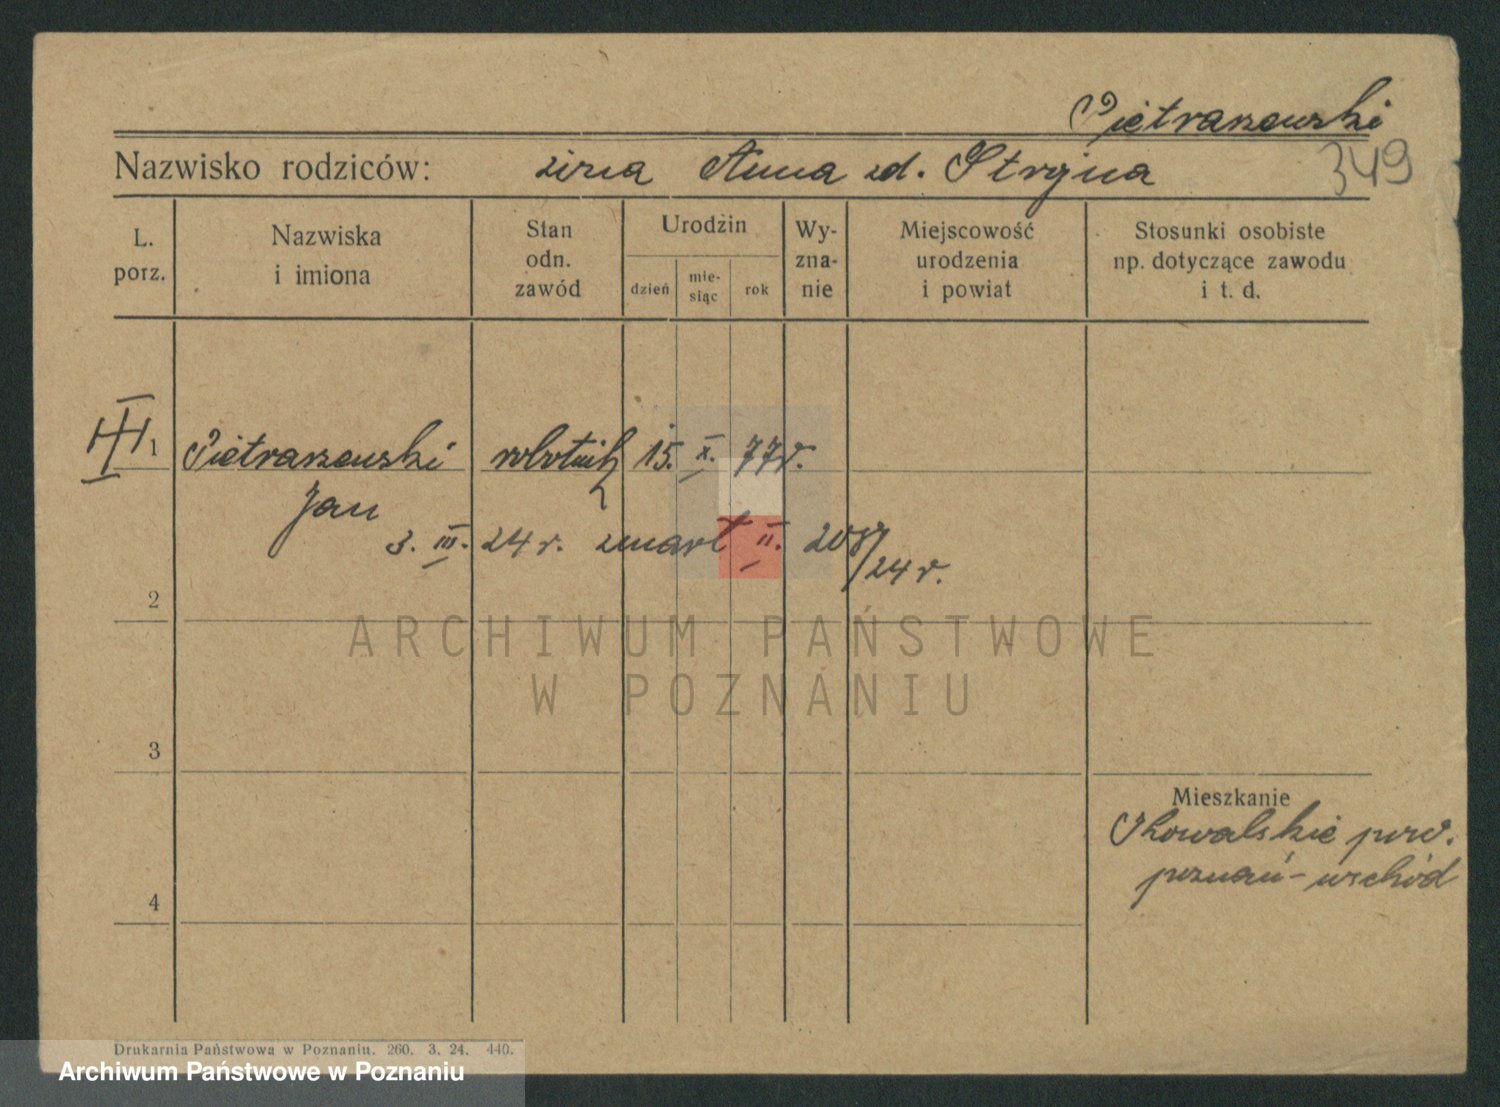 Pietraszewski
Nazwisko rodziców: żona Anna zd. Stryjna 349
L. porz. Nazwiska i imiona Stan odn. zawód Urodzin dzień mie- siąc rok Wy- zna- nie Miejscowość urodzenia i powiat Stosunki osobiste np. dotyczące zawodu i t. d.
III 1 Pietraszewski robotnik 15. X. 77 r.
Jan
3. III. 24 r. zmarł II. 208/24 r.
2
ARCHIWUM PAŃSTWOWE
W POZNANIU
3
Mieszkanie
Kowalskie pow.
poznań-wschód
4
Drukarnia Państwowa w Poznaniu. 260. 3. 24. 440.
Archiwum Państwowe w Poznaniu